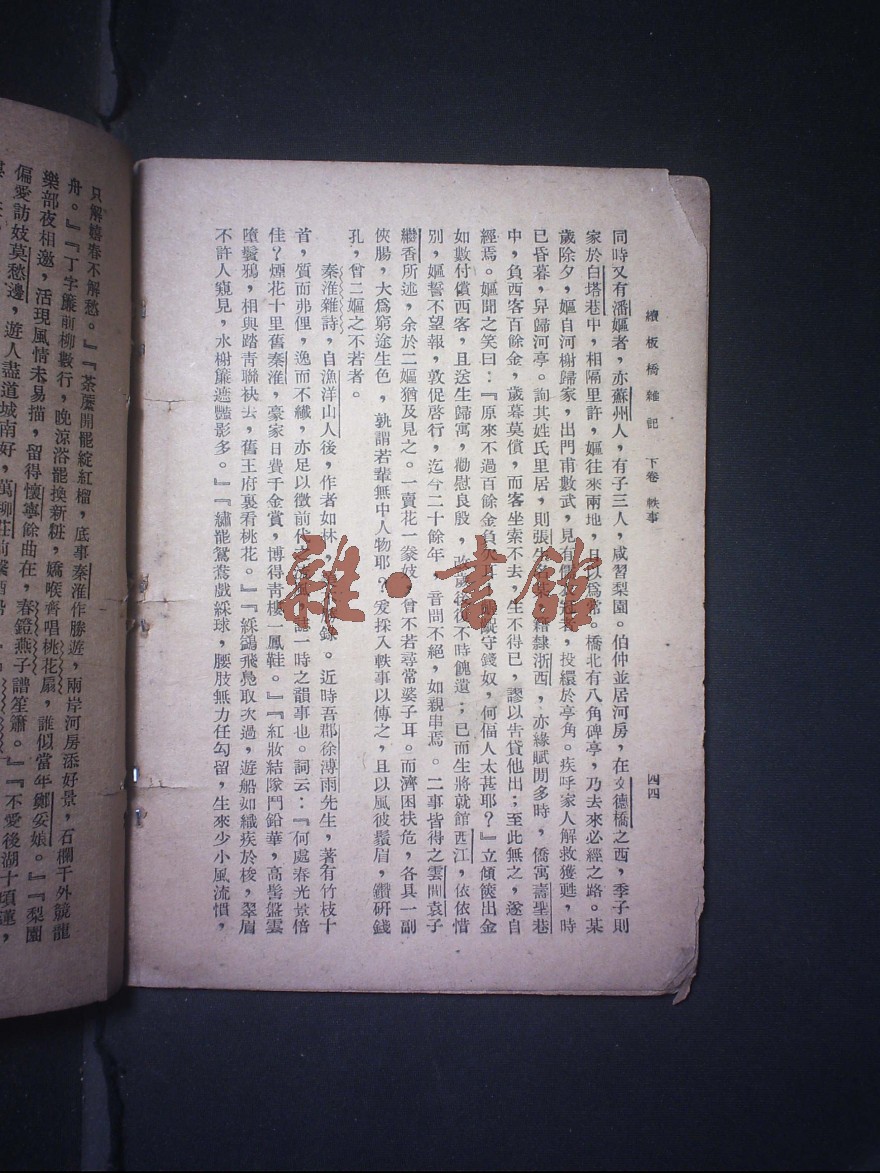 續板橋雜記 下卷 軼事
四四
同時又有潘嫗者，亦蘇州人，有子三人，咸習梨園。伯仲並居河房，在文德橋之西，季子則
家於白塔巷中，相隔里許，嫗往來兩地，日以爲常。橋北有八角碑亭，乃去來必經之路。某
歲除夕，嫗自河榭歸家，出門甫數武，見有，投繯於亭角。疾呼家人解救獲甦，時
已昏暮，舁歸河亭。詢其姓氏里居，則張生籍隸浙西，亦緣賦閒多時，僑寓壽聖巷
中，負西客百餘金，歲暮莫償，而客坐索不去，生不得已，謬以告貸他出；至此無之，遂自
經焉。嫗聞之笑曰：『原來不過百餘金負欠耳，守錢奴，何偪人太甚耶？』立傾篋出金
如數付償西客，且送生歸寓，勸慰良殷，不時餽遺；已而生將就館西江，依依惜
別，嫗誓不望報，敦促啓行，迄今二十餘年，音問不絕，如親串焉。二事皆得之雲間袁子
繼香所述，余於二嫗猶及見之。一賣花一豢妓，曾不若尋常婆子耳。而濟困扶危，各具一副
俠腸，大爲窮途生色，孰謂若輩無中人物耶？爰採入軼事以傳之，且以風彼鬚眉，鑽研錢
孔，曾二嫗之不若者。
秦淮雜詩，自漁洋山人後，作者如林，錄。近時吾郡徐溥雨先生，著有竹枝十
首，質而弗俚，逸而不纖，亦足以徵前代之，誌一時之韻事也。詞云：『何處春光景倍
佳？煙花十里舊秦淮，豪家日費千金賞，博得靑樓一鳳鞋。』『紅妝結隊鬥鉛華，高髻盤雲
墮鬢鴉，相與踏靑聯袂去，舊王府裏看桃花。』『綵鷁飛鳧取次過，遊船如織疾於梭，翠眉
不許人窺見，水榭簾遮豔影多。』『繡罷鴛鴦戲綵球，腰肢無力任勾留，生來少小風流慣，
只解嬉春不解愁。』『荼䕷開罷綻紅榴，底事秦淮作勝遊，兩岸河房添好景，石欄干外競龍
舟。』『丁字簾前柳數行，晚涼浴罷換新粧，嬌喉齊唱桃花扇，誰似當年鄭妥娘。』『梨園
樂部夜相邀，活現風情未易描，留得懷寧餘曲在，春鐙燕子譜笙簫。』『不愛後湖十頃蓮，
偏愛訪妓莫愁邊，遊人盡道城南好，萬柳莊前繫酒